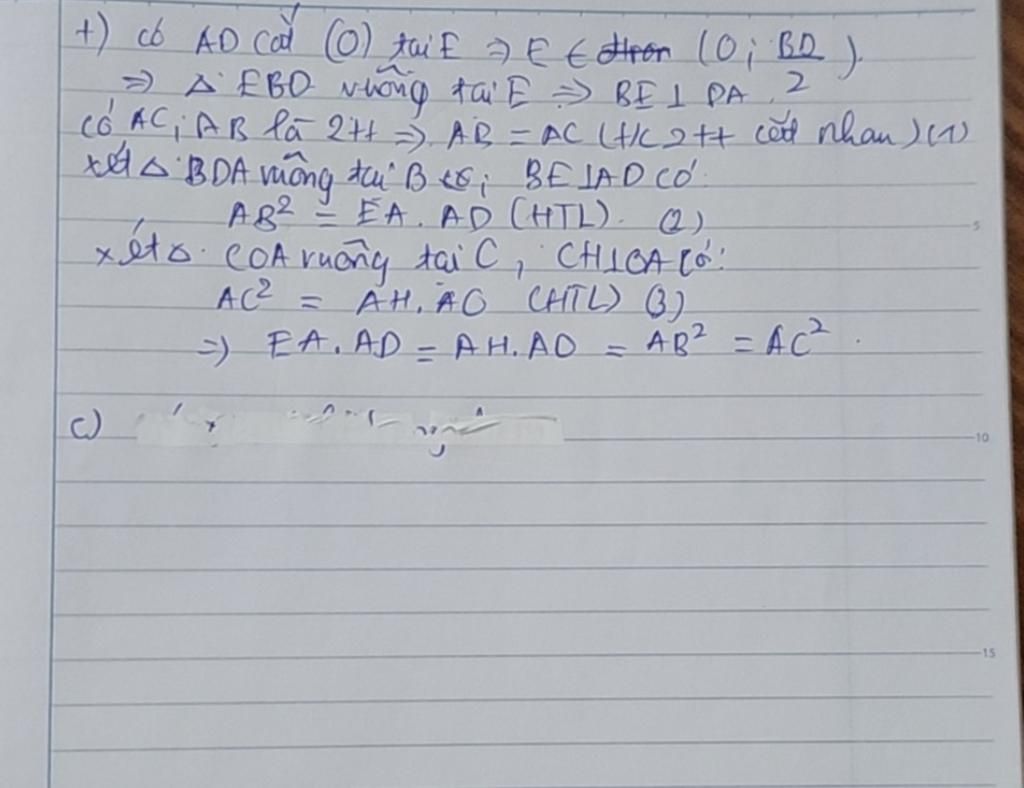 +) có AD cắt (O) tại E ⇒ E ∈ (O; BD/2).
⇒ Δ EBD vuông tại E ⇒ BE ⊥ DA.
có AC; AB là 2tt ⇒ AB = AC (t/c 2tt cắt nhau) (1)
xét Δ BDA vuông tại B có; BE⊥AD có:
AB² = EA. AD (HTL). (2)
xét Δ. COA vuông tại C, CH⊥OA có:
AC² = AH. AO (HTL) (3)
⇒ EA. AD = AH. AO = AB² = AC².
5
c)
10
15